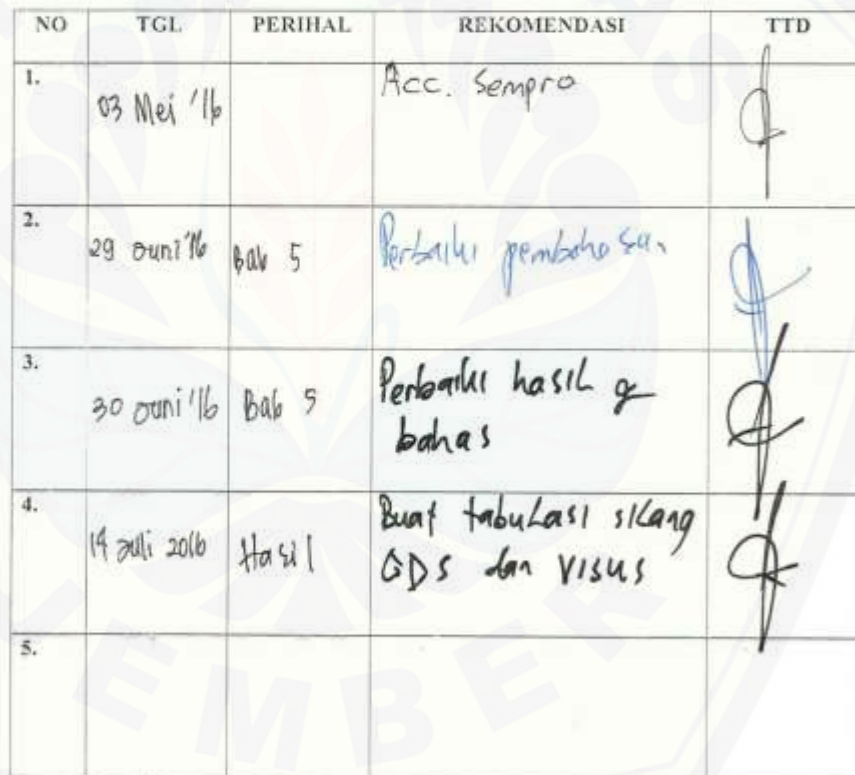 NO TGL PERIHAL REKOMENDASI TTD
1. 03 Mei '16 Acc. Sempro
2. 29 Juni '16 Bab 5 Perbaiki pembahasan
3. 30 Juni '16 Bab 5 Perbaiki hasil &
bahas
4. 14 Juli 2016 Hasil Buat tabulasi silang
GDS dan VISUS
5.
EMBER